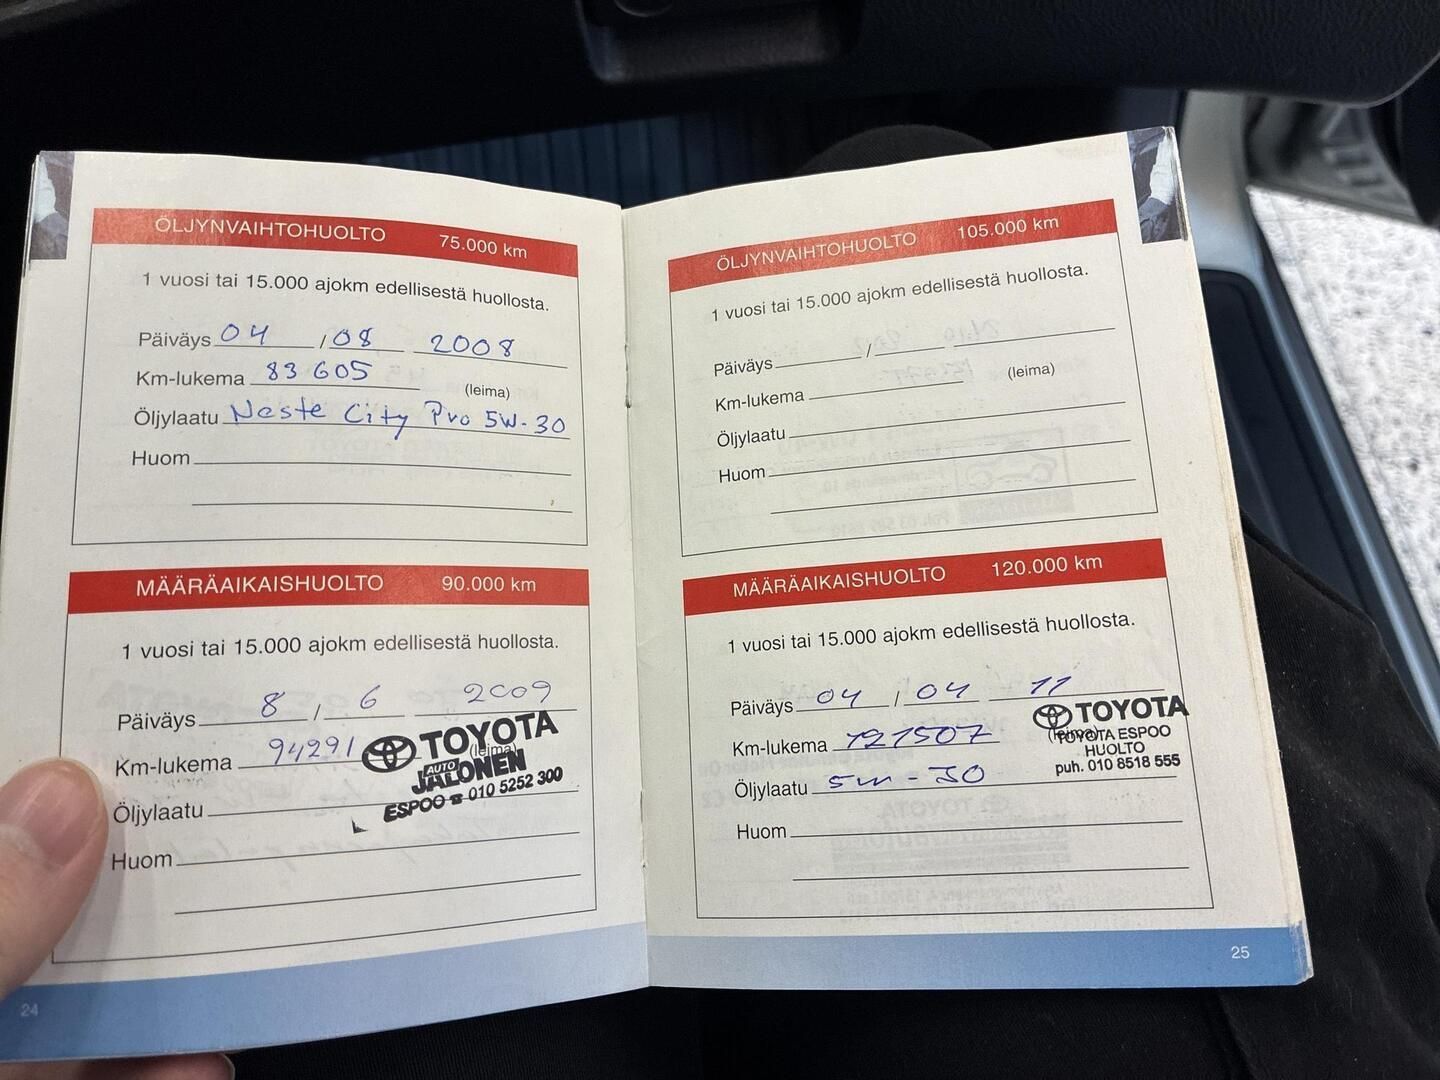 ÖLJYNVAIHTOHUOLTO 75.000 km
1 vuosi tai 15.000 ajokm edellisestä huollosta.
Päiväys 04 / 08 2008
Km-lukema 83 605 (leima)
Öljylaatu Neste City Pro 5W-30
Huom
MÄÄRÄAIKAISHUOLTO 90.000 km
1 vuosi tai 15.000 ajokm edellisestä huollosta.
Päiväys 8 / 6 2009
Km-lukema 94291 (leima)
TOYOTA
AUTO
JALONEN
ESPOO ☎ 010 5252 300
Öljylaatu
Huom
24
ÖLJYNVAIHTOHUOLTO 105.000 km
1 vuosi tai 15.000 ajokm edellisestä huollosta.
Päiväys /
Km-lukema (leima)
Öljylaatu
Huom
MÄÄRÄAIKAISHUOLTO 120.000 km
1 vuosi tai 15.000 ajokm edellisestä huollosta.
Päiväys 04 / 04 11
Km-lukema 121507 (leima)
TOYOTA
TOYOTA ESPOO
HUOLTO
puh. 010 8518 555
Öljylaatu 5w-30
Huom
25